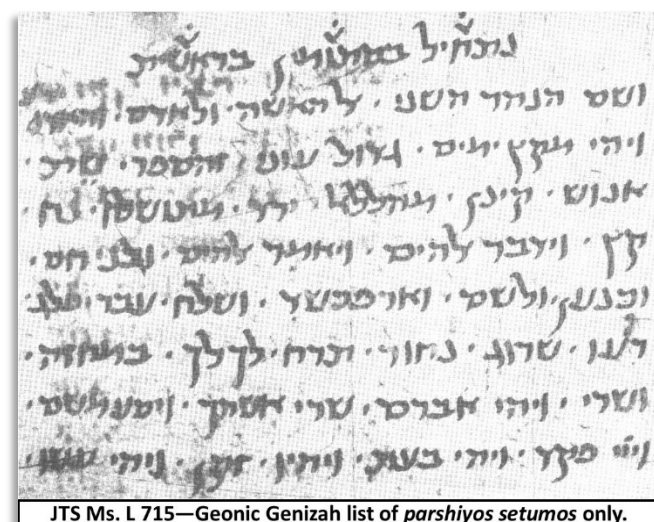 נתחיל בסתומין בראשית
ושם הנהר השני · אל האשה · ולאדם ·
ויהי מקץ ימים · גדול עוני ·
אנוש · קינן · מהללאל · ירד · מתושלח · נח ·
קץ · וידבר להים · ויאמר להים · ובני חם ·
וכנען · ולשם · וארפכשד · ושלח · עבר · פלג
רעו · שרוג · נחור · תרח · לך לך · במחזה ·
ושרי · ויהי אברם · שרי אשתך · ויסע משם ·
פקד · ויהי בעת · ויהי
JTS Ms. L 715—Geonic Genizah list of parshiyos setumos only.